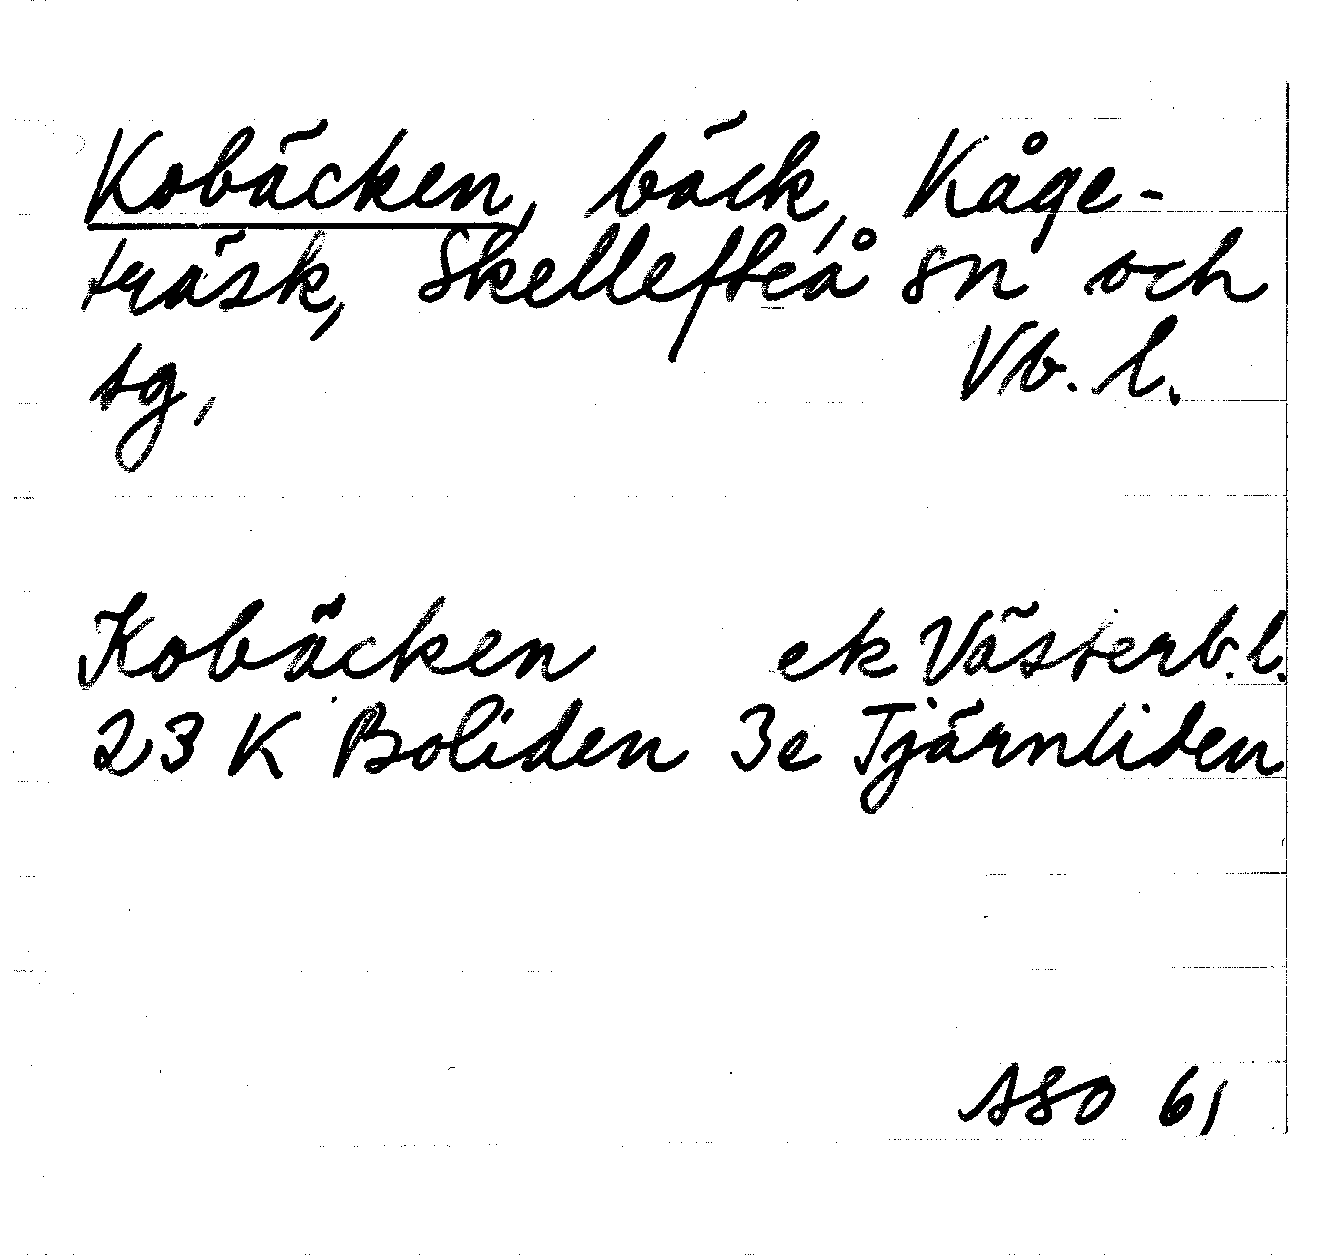 Kobäcken, bäck, Kåge-
träsk, Skellefteå sn och
tg, Vb. l.
Kobäcken ek Västerb. l.
23 K Boliden 3e Tjärnliden
ASO 61